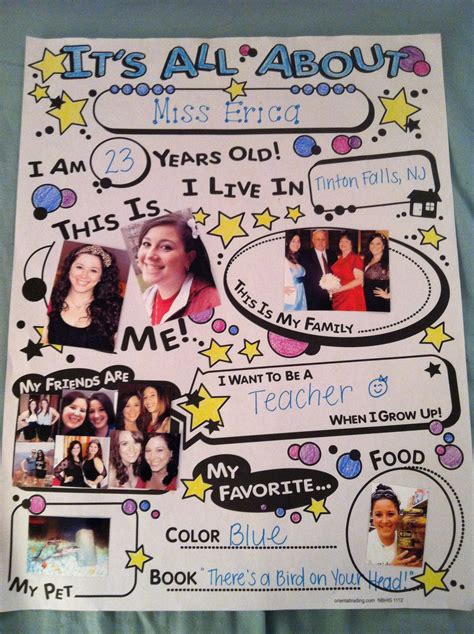 IT'S ALL ABOUT
Miss Erica
I AM 23 YEARS OLD!
I LIVE IN Tinton Falls, NJ
THIS IS
ME!
THIS IS MY FAMILY
MY FRIENDS ARE
I WANT TO BE A
Teacher
WHEN I GROW UP!
MY
FAVORITE...
FOOD
COLOR Blue
BOOK "There's a Bird on Your Head!"
MY PET
orientaltrading.com NBHIS 1112